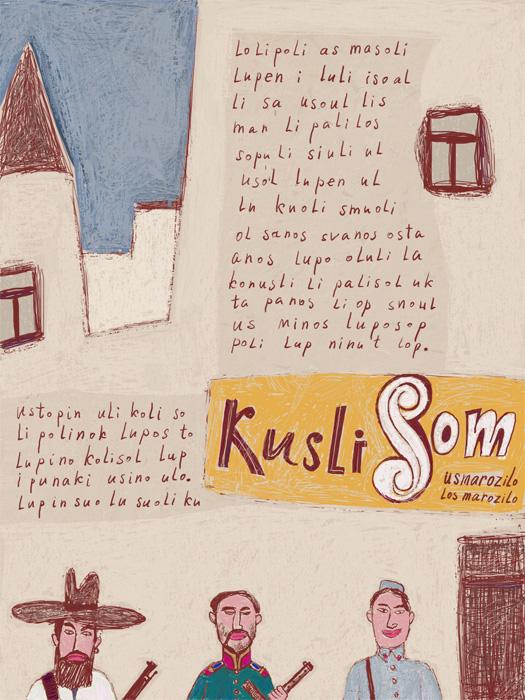 Lolipoli as masoli
Lupen i luli isoal
li sa usoul lis
man li palilos
sopuli siuli ul
usol lupen ul
ln knoli smuoli
ol sanos svanos osta
anos lupo oluli la
konusli li palisol uk
ta panos li op snoul
us minos luposop
poli lup ninut lop.
Kusli Som
usmarozilo
los marozilo
ustopin uli koli so
li polinok lupos to
Lupino kolisol lup
i punaki usino ulo.
Lupinsuo lu suoli ku